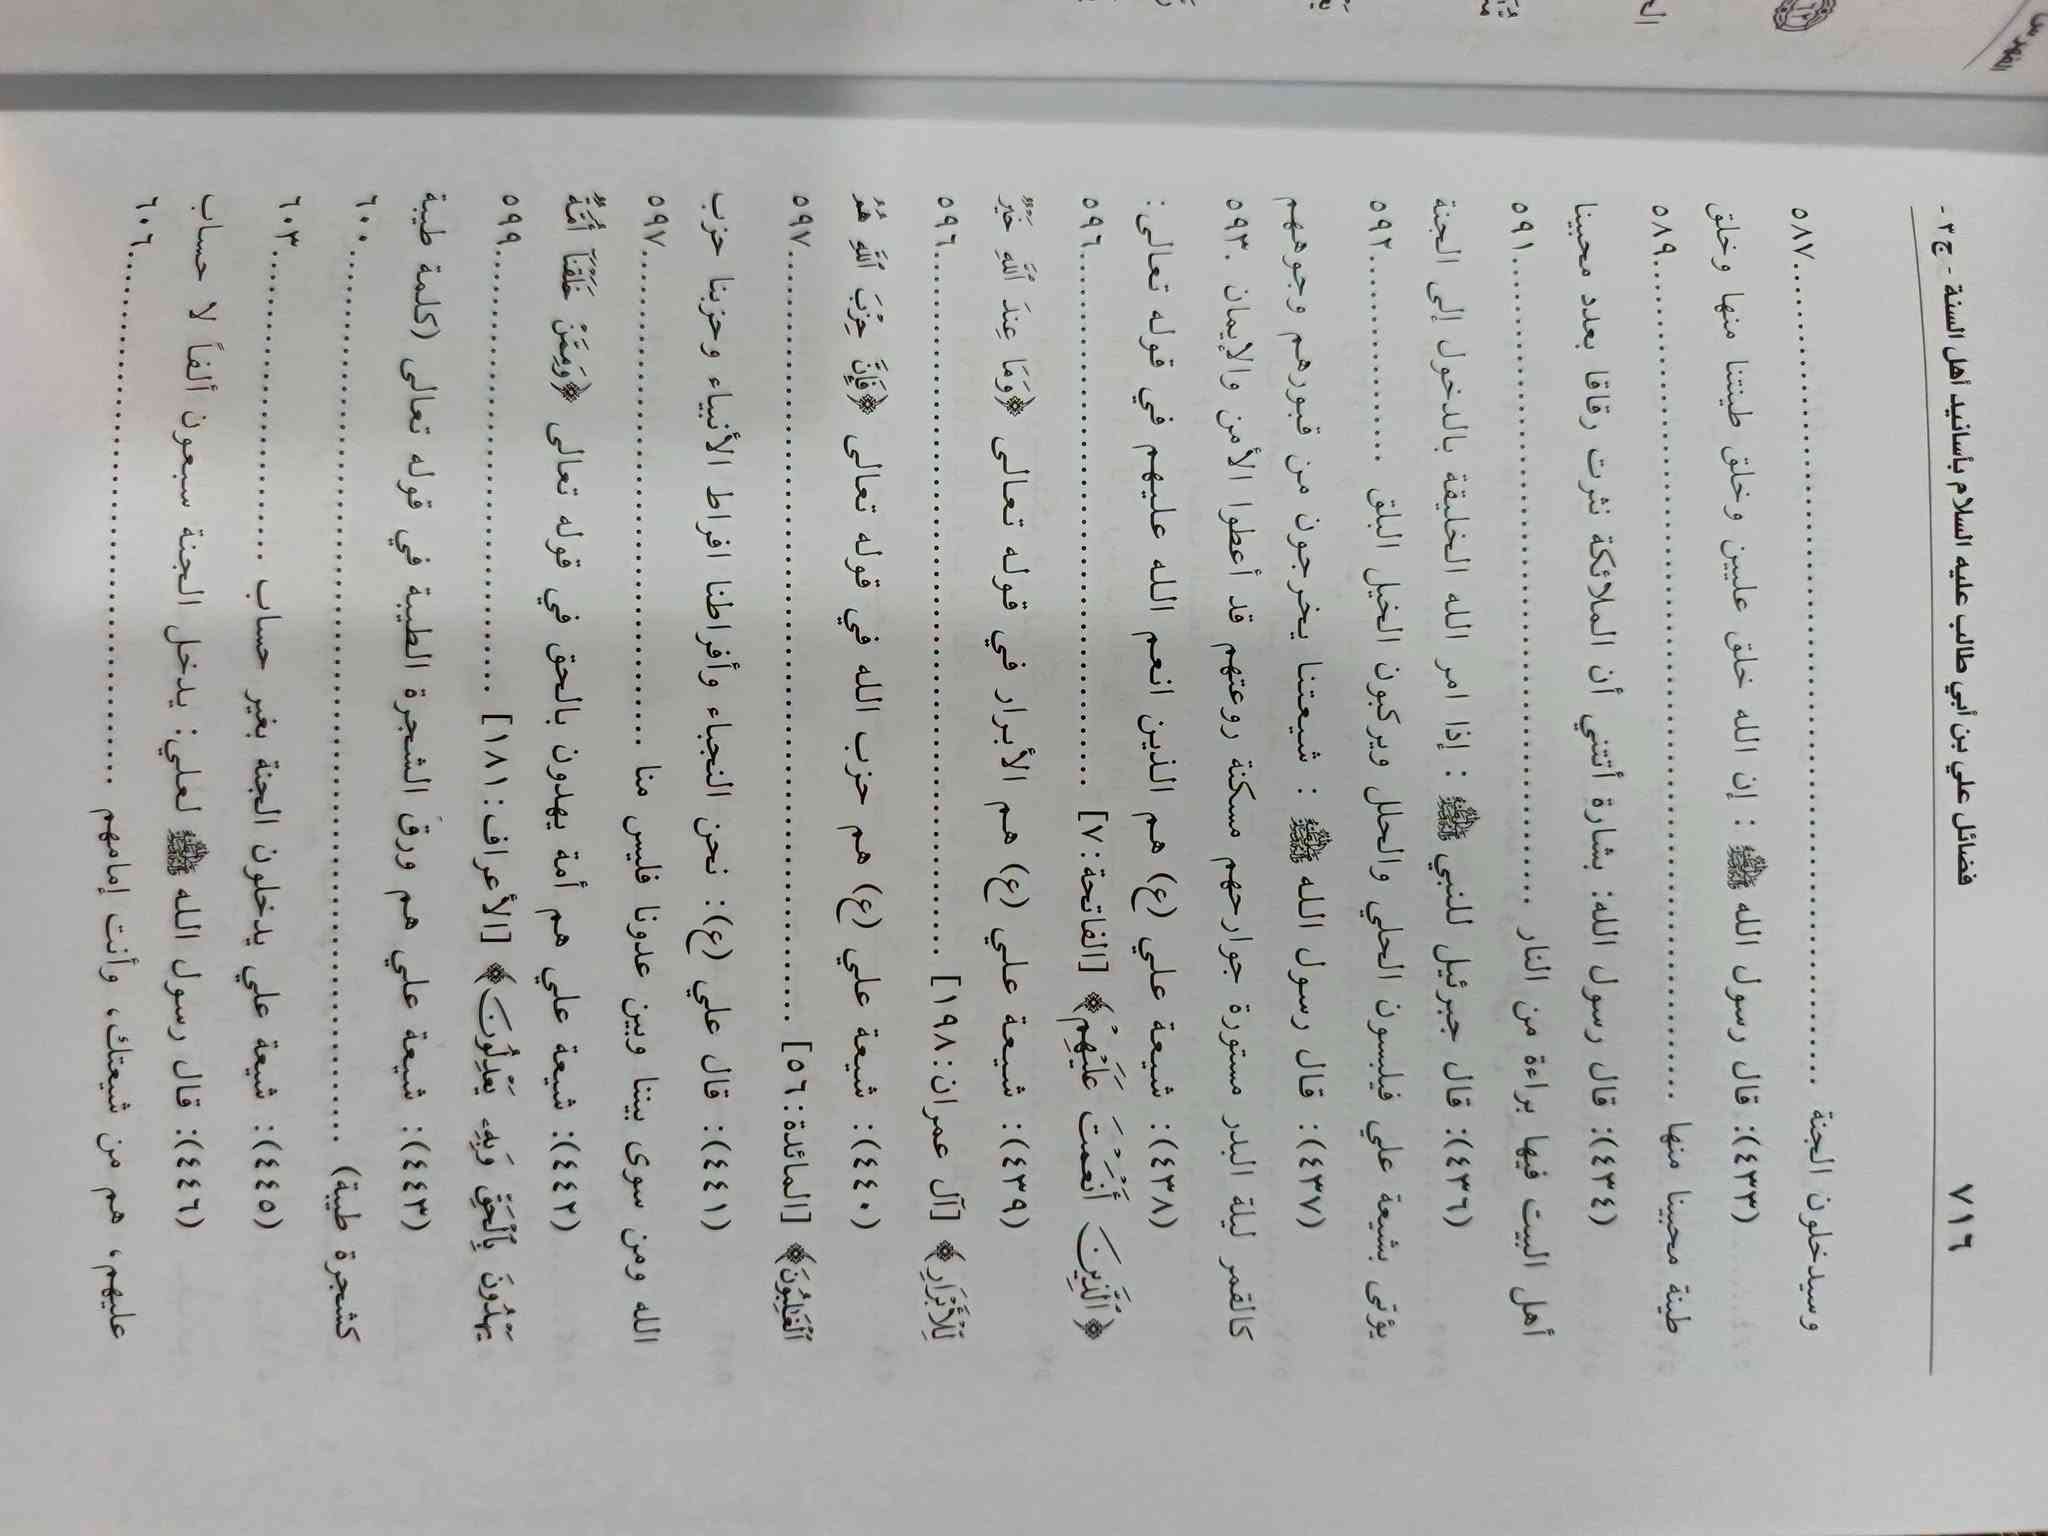 ٧١٦ فضائل علي بن أبي طالب عليه السلام بأسانيد أهل السنة - ج٣ -
وسيدخلون الجنة ........ ٥٨٧
(٤٣٣): قال رسول الله ﷺ : إن الله خلق عليين وخلق طينتنا منها وخلق
طينة محبينا منها ........ ٥٨٩
(٤٣٤): قال رسول الله: بشارة أتتني أن الملائكة نثرت رقاقا بعدد محبينا
أهل البيت فيها براءة من النار ........ ٥٩١
(٤٣٦): قال جبرئيل للنبي ﷺ : إذا امر الله الخليقة بالدخول إلى الجنة
يؤتى بشيعة علي فيلبسون الحلي والحلل ويركبون الخيل البلق ........ ٥٩٢
(٤٣٧): قال رسول الله ﷺ : شيعتنا يخرجون من قبورهم وجوههم
كالقمر ليلة البدر مستورة جوارحهم مسكنة روعتهم قد أعطوا الأمن والإيمان . ٥٩٣
(٤٣٨): شيعة علي (ع) هم الذين انعم الله عليهم في قوله تعالى:
﴿ٱلَّذِينَ أَنْعَمْتَ عَلَيْهِمْ﴾ [الفاتحة:٧] ........ ٥٩٦
(٤٣٩): شيعة علي (ع) هم الأبرار في قوله تعالى ﴿وَمَا عِندَ ٱللَّهِ خَيْرٌ
لِّلْأَبْرَارِ﴾ [آل عمران:١٩٨] ........ ٥٩٦
(٤٤٠): شيعة علي (ع) هم حزب الله في قوله تعالى ﴿فَإِنَّ حِزْبَ ٱللَّهِ هُمُ
ٱلْغَٰلِبُونَ﴾ [المائدة:٥٦] ........ ٥٩٧
(٤٤١): قال علي (ع): نحن النجباء وأفراطنا افراط الأنبياء وحزبنا حزب
الله ومن سوى بيننا وبين عدونا فليس منا ........ ٥٩٧
(٤٤٢): شيعة علي هم أمة يهدون بالحق في قوله تعالى ﴿وَمِمَّنْ خَلَقْنَآ أُمَّةٌ
يَهْدُونَ بِٱلْحَقِّ وَبِهِۦ يَعْدِلُونَ﴾ [الأعراف:١٨١] ........ ٥٩٩
(٤٤٣): شيعة علي هم ورق الشجرة الطيبة في قوله تعالى (كلمة طيبة
كشجرة طيبة) ........ ٦٠٠
(٤٤٥): شيعة علي يدخلون الجنة بغير حساب ........ ٦٠٣
(٤٤٦): قال رسول الله ﷺ لعلي: يدخل الجنة سبعون ألفاً لا حساب
عليهم، هم من شيعتك، وأنت إمامهم ........ ٦٠٦
الفهرس